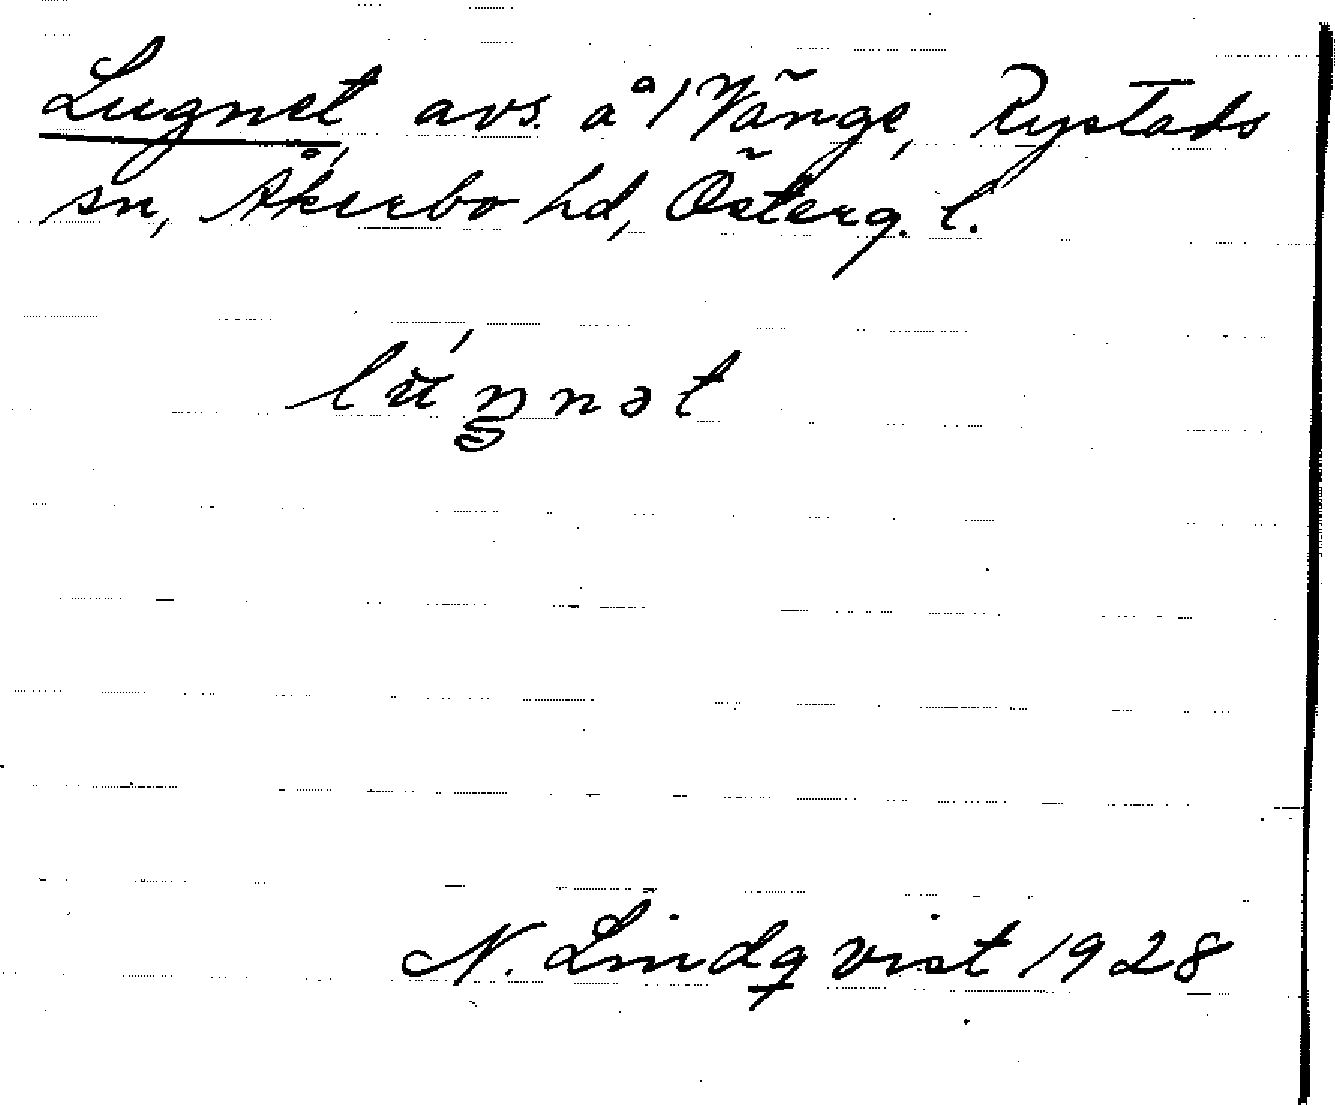 Lugnet, avs. å /Vänge, Rystads
sn, Åkerbo hd, Österg. l.
lú̆ŋnət
N. Lindqvist 1928